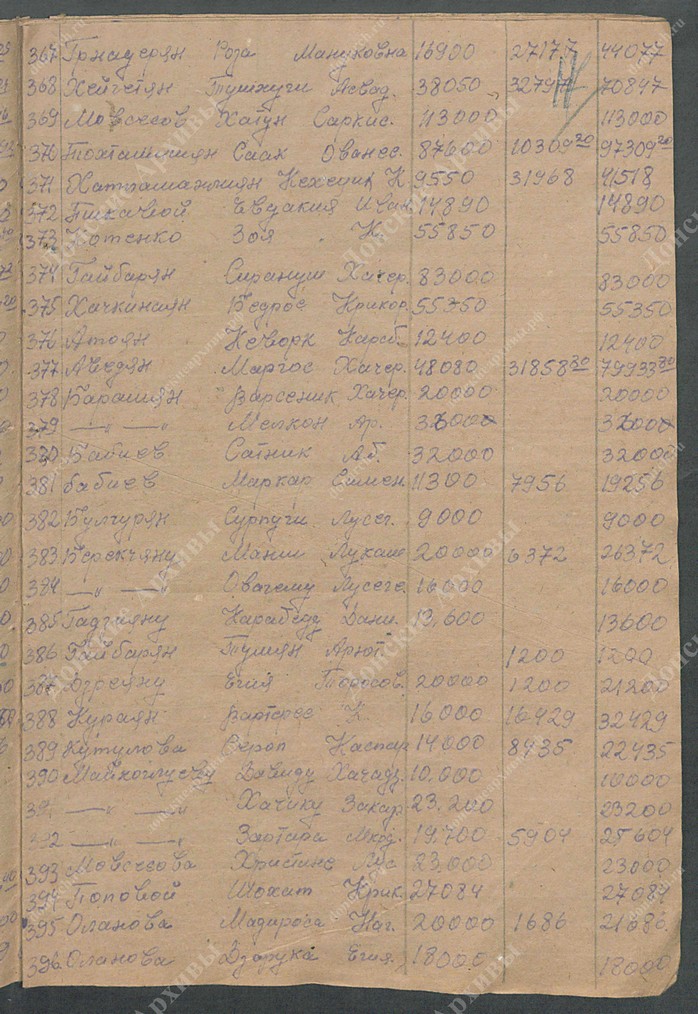 367 Грнадерян Роза Мануковна 16900 27177 44077
368 Хейгетян Тушхуги Асвад. 38050 32797 70847
369 Мовсесов Хатун Саркис. 113000 113000
370 Тохтамишиян Саак Ованес. 87000 10309 20 97309 20
371 9550 31968 41518
372 Евдакия Иван. 14890 14890
373 Котенко Зоя К. 55850 55850
374 Гайбарян Сирануш Хачер. 83000 83000
375 Хачкинаян Бедрос Крикор. 55350 55350
376 Атоян Кеворк Караб. 12400 12400
377 Аведян Маргос Хачер. 48080 31858 30 79933 30
378 Барашиян Варсеник Хачер. 20000 20000
379 —„— Мелкон Ар. 36000 36000
380 Бабиев Сатник Аб. 32000 32000
381 Бабиев Маркар Симен. 11300 7956 19256
382 Булгурян Сурпуги Лусег. 9000 9000
383 Берекчяну Манши Лукаш 20000 6372 26372
384 —„— Овагему Лусеге. 16000 16000
385 Гадзияну Карабеду Дани. 13,600 13600
386 Гайбарян Тушиян Арют. 1200 1200
387 Егия Торосов. 20000 1200 21200
388 Кураян Вартерес К. 16000 16429 32429
389 Кутулова Сероп Каспар 14000 8435 22435
390 Давиду Хачад. 10.000 10000
—„— Хачику Закар 23.200 23200
—„— Заотара Мкод. 19.700 5904 25604
393 Мовсесова Христине 23.000 23000
394 Поповой Шохат Крик. 27084 27084
395 Оланова Мадироса Наг. 20000 1686 21686
396 Оланова Дзарука Егия. 18000 18000
Донские Архивы